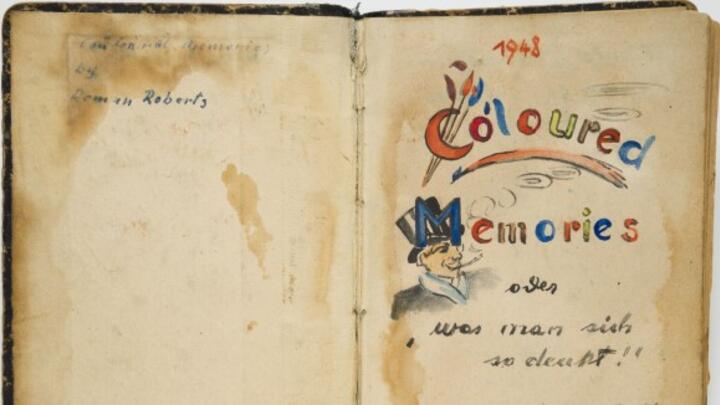 Coloured Memories
by
Roman Roberts
1948
Coloured
Memories
oder
„was man sich
so denkt!"